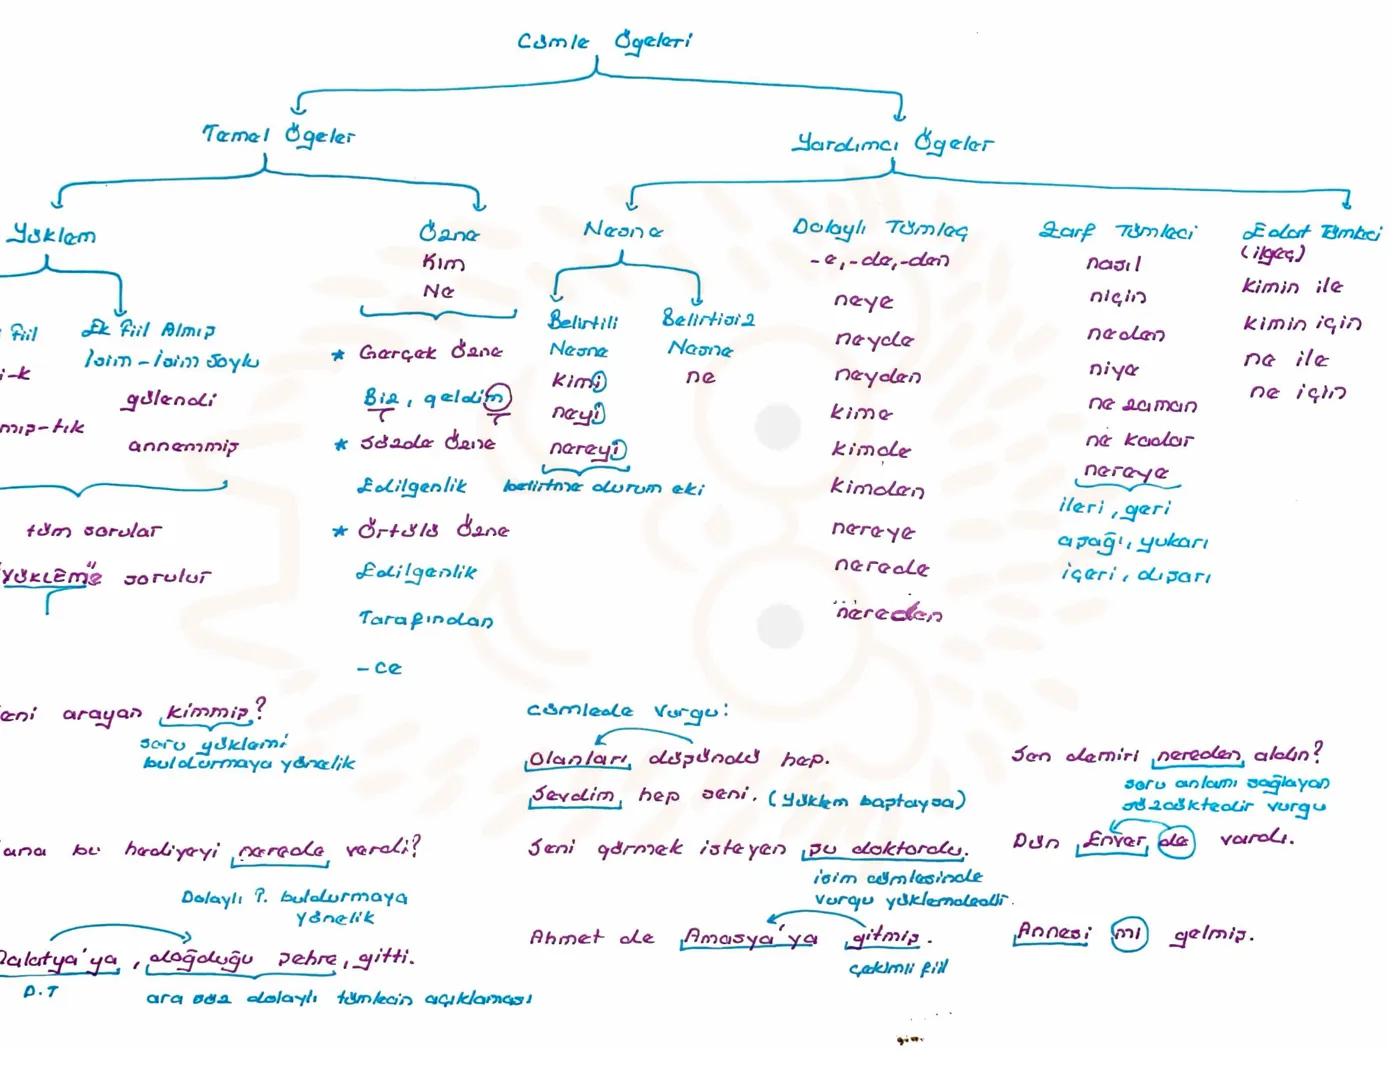 Cümle Ögeleri
Temel Ögeler
Yardımcı Ögeler
Yüklem
Özne
Kim
Ne
Nesne
Dolaylı Tümleç
-e, -de, -den
neye
neyde
neyden
kime
kimde
kimden
nereye
nerede
nereden
Zarf Tümleci
nasıl
niçin
neden
niye
ne zaman
ne kadar
nereye
ileri, geri
aşağı, yukarı
içeri, dışarı
Edat Tümleci
(ilgeç)
kimin ile
kimin için
ne ile
ne için
fiil
Ek fiil Almış
İsim - İsim Soylu
güldendi
annemmiş
mış-tık
tüm sorular
"YÜKLEME" sorulur
* Gerçek Özne
Biz, geldim
* Sözde Özne
Edilgenlik
* Örtülü Özne
Edilgenlik
Tarafından
-ce
Belirtili
Nesne
kimi
neyi
nereyi
belirtme durum eki
Belirtisiz
Nesne
ne
arayan kimmiş?
soru yüklemi
buldurmaya yönelik
bu hediyeyi nerede verdi?
Dolaylı T. buldurmaya
yönelik
Malatya'ya, doğduğu şehre, gitti.
D.T
ara söz dolaylı tümlecin açıklaması
cümlede vurgu:
Olanları düşündü hep.
Sevdim hep seni. (yüklem baştaysa)
Seni görmek isteyen şu doktordu.
isim cümlesinde
vurgu yüklemdedir.
Ahmet de Amasya'ya gitmiş.
çekimli fiil
Sen demiri nereden aldın?
soru anlamı sağlayan
sözcüktedir vurgu
Dün Enver de vardı.
Annesi mi gelmiş.